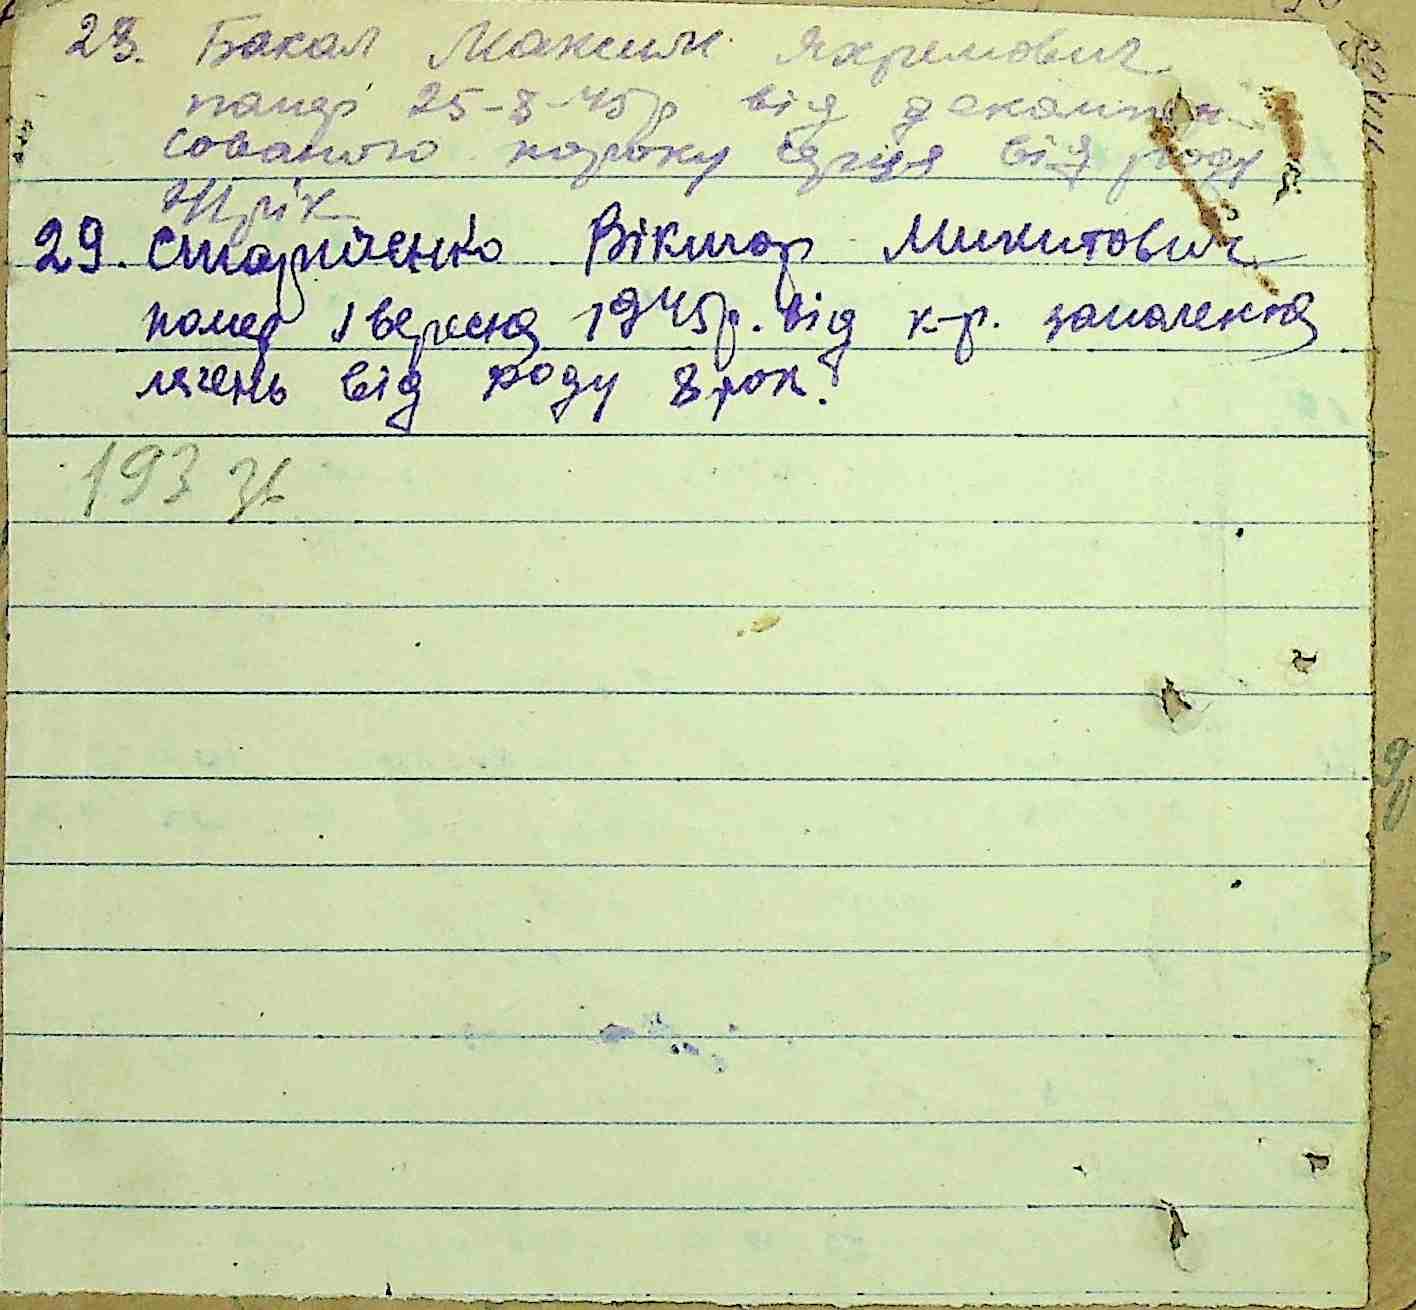 28. Бакал Максим Яхремович
помер 25-8-45р від декомпен
сованого пороку серця від роду
рік
29. Старченко Віктор Микитович
помер 1 вересня 1945р. від к-р. запалення
легень від роду 8 рок.
193